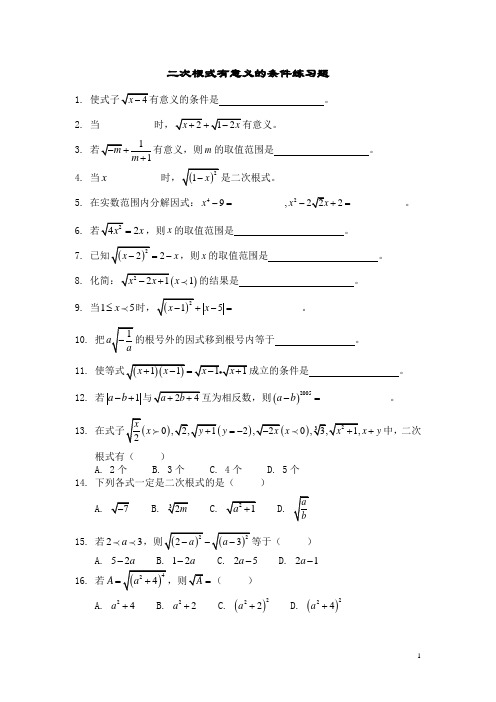 二次根式有意义的条件练习题
1. 使式子√(x-4)有意义的条件是 。
2. 当 时，√(x+2)+√(1-2x)有意义。
3. 若√(-m)+1/(m+1)有意义，则m的取值范围是 。
4. 当x 时，√((1-x)²)是二次根式。
5. 在实数范围内分解因式：x⁴-9= ,x²-2√2x+2= 。
6. 若√(4x²)=2x，则x的取值范围是 。
7. 已知√((x-2)²)=2-x，则x的取值范围是 。
8. 化简：√(x²-2x+1)(x≺1)的结果是 。
9. 当1≤x≺5时，√((x-1)²)+|x-5|= 。
10. 把a√(-1/a)的根号外的因式移到根号内等于 。
11. 使等式√((x+1)(x-1))=√(x-1)•√(x+1)成立的条件是 。
12. 若|a-b+1|与√(a+2b+4)互为相反数，则(a-b)²⁰⁰⁵= 。
13. 在式子√(x/2)(x≻0),√2,√(y+1)(y=-2),√(-2x)(x≺0),∛3,√(x²+1),x+y中，二次
根式有（ ）
A. 2个 B. 3个 C. 4个 D. 5个
14. 下列各式一定是二次根式的是（ ）
A. √(-7) B. ∛(2m) C. √(a²+1) D. √(a/b)
15. 若2≺a≺3，则√((2-a)²)-√((a-3)²)等于（ ）
A. 5-2a B. 1-2a C. 2a-5 D. 2a-1
16. 若A=√((a²+4)⁴)，则√A=（ ）
A. a²+4 B. a²+2 C. (a²+2)² D. (a²+4)²
1